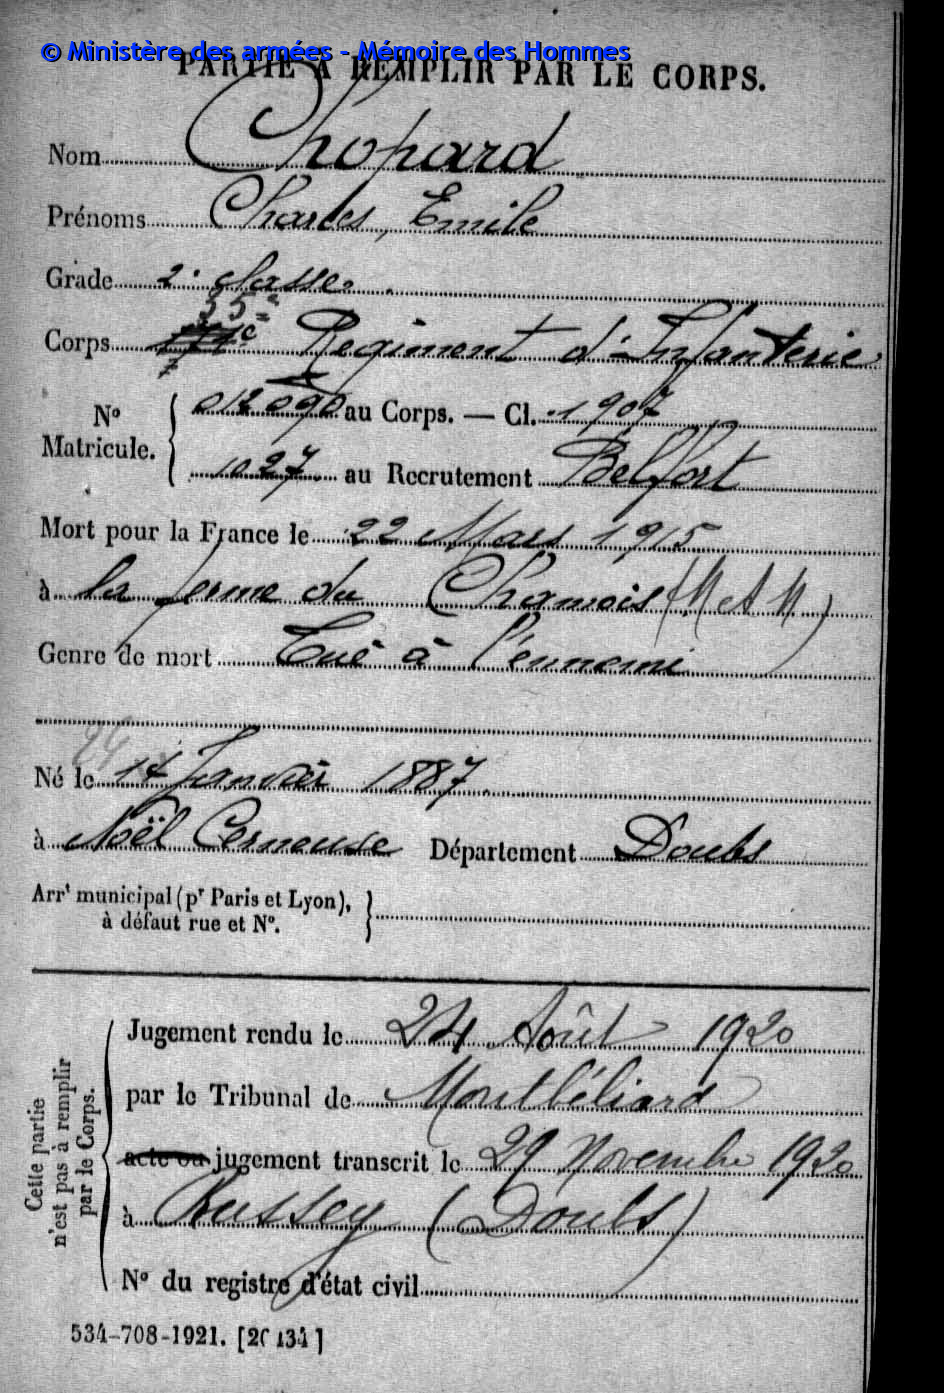 © Ministère des armées - Mémoire des Hommes
PARTIE À REMPLIR PAR LE CORPS.
Nom Chopard
Prénoms Charles, Emile
Grade 2e classe.
35e
Corps Régiment d'Infanterie
No Matricule. { 012090 au Corps. — Cl. 1907
1027 au Recrutement Belfort
Mort pour la France le 22 Mars 1915
à la ferme du Chamois (M et M)
Genre de mort Tué à l'ennemi
24
Né le 14 Janvier 1887
à Noël Cerneuse Département Doubs
Arrt municipal (pr Paris et Lyon), }
à défaut rue et No.
Cette partie
n'est pas à remplir
par le Corps.
Jugement rendu le 24 Août 1920
par le Tribunal de Montbéliard
acte ou jugement transcrit le 29 Novembre 1920
à Bussey (Doubs)
No du registre d'état civil
534-708-1921. [26434]